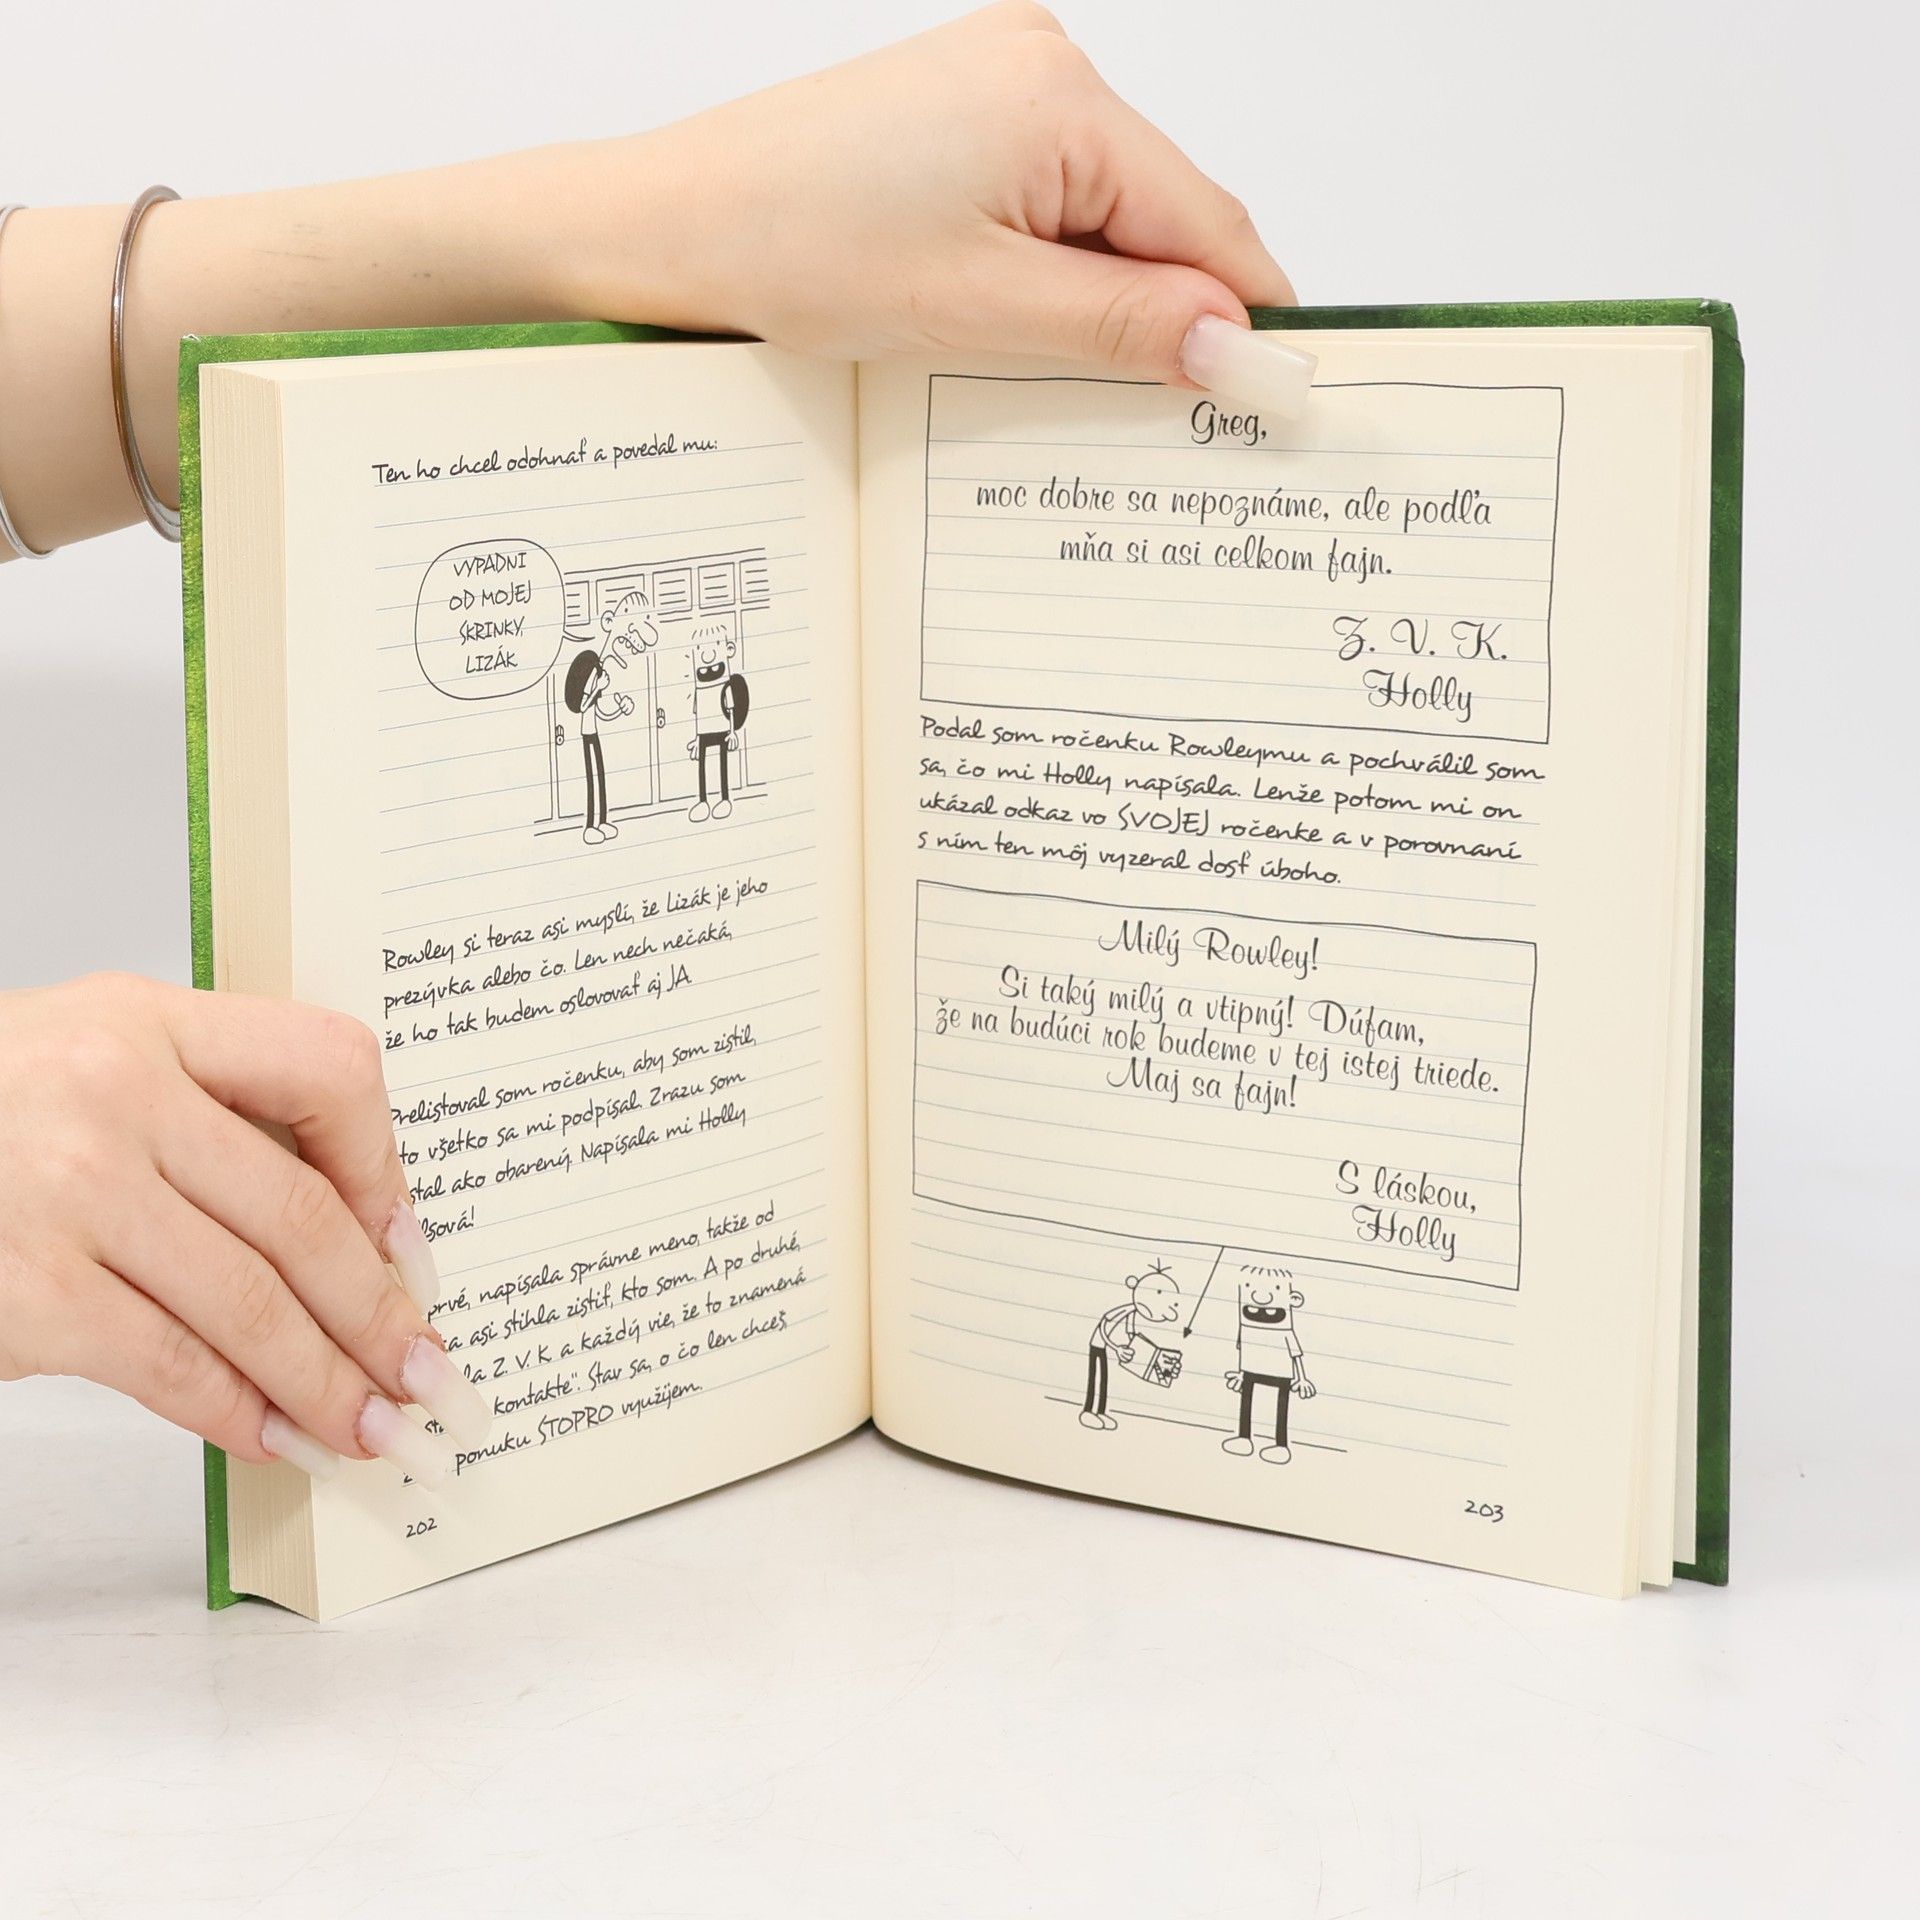 Ten ho chcel odohnať a povedal mu:
VYPADNI
OD MOJEJ
SKRINKY,
LIZÁK
Rowley si teraz asi myslí, že Lizák je jeho
prezývka alebo čo. Len nech nečaká,
že ho tak budem oslovovať aj JA.
Prelistoval som ročenku, aby som zistil,
to všetko sa mi podpísal. Zrazu som
stal ako obarený. Napísala mi Holly
lsová!
prvé, napísala správne meno, takže od
asi stihla zistiť, kto som. A po druhé,
la Z. V. K. a každý vie, že to znamená
kontakte". Stav sa, o čo len chceš,
ponuku STOPRO využijem.
202
Greg,
moc dobre sa nepoznáme, ale podľa
mňa si asi celkom fajn.
Z. V. K.
Holly
Podal som ročenku Rowleymu a pochválil som
sa, čo mi Holly napísala. Lenže potom mi on
ukázal odkaz vo SVOJEJ ročenke a v porovnaní
s ním ten môj vyzeral dosť úboho.
Milý Rowley!
Si taký milý a vtipný! Dúfam,
že na budúci rok budeme v tej istej triede.
Maj sa fajn!
S láskou,
Holly
203